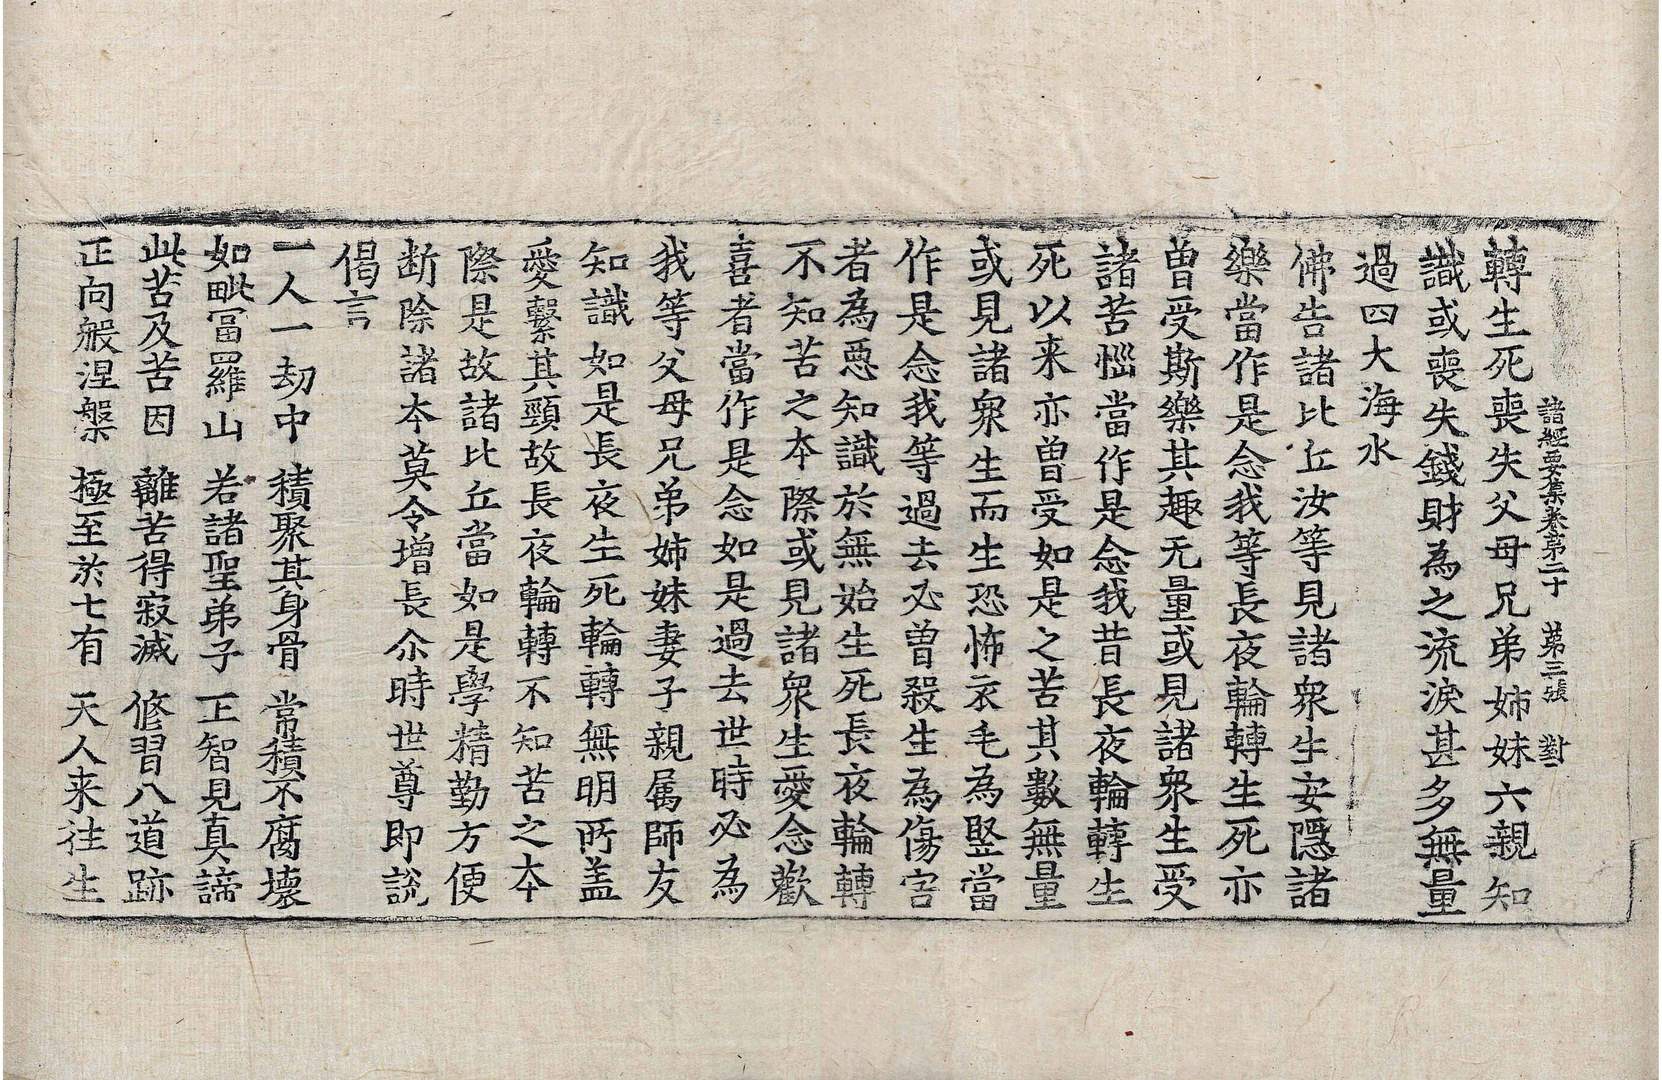 諸經要集卷第二十　第三張　對
轉生死喪失父母兄弟姉妹六親知
識或喪失錢財為之流淚甚多無量
過四大海水
佛告諸比丘汝等見諸衆生安隱諸
樂當作是念我等長夜輪轉生死亦
曽受斯樂其趣无量或見諸衆生受
諸苦惱當作是念我昔長夜輪轉生
死以来亦曽受如是之苦其數無量
或見諸衆生而生恐怖衣毛為竪當
作是念我等過去必曽殺生為傷害
者為惡知識於無始生死長夜輪轉
不知苦之本際或見諸衆生愛念歡
喜者當作是念如是過去世時必為
我等父母兄弟姉妹妻子親属師友
知識如是長夜生死輪轉無明所盖
愛繫其頸故長夜輪轉不知苦之本
際是故諸比丘當如是學精勤方便
断除諸本莫令增長尒時世尊即說
偈言
一人一刼中　積聚其身骨　常積不腐壞
如毗冨羅山　若諸聖弟子　正智見真諦
此苦及苦因　離苦得寂滅　修習八道跡
正向般涅槃　極至於七有　天人来往生